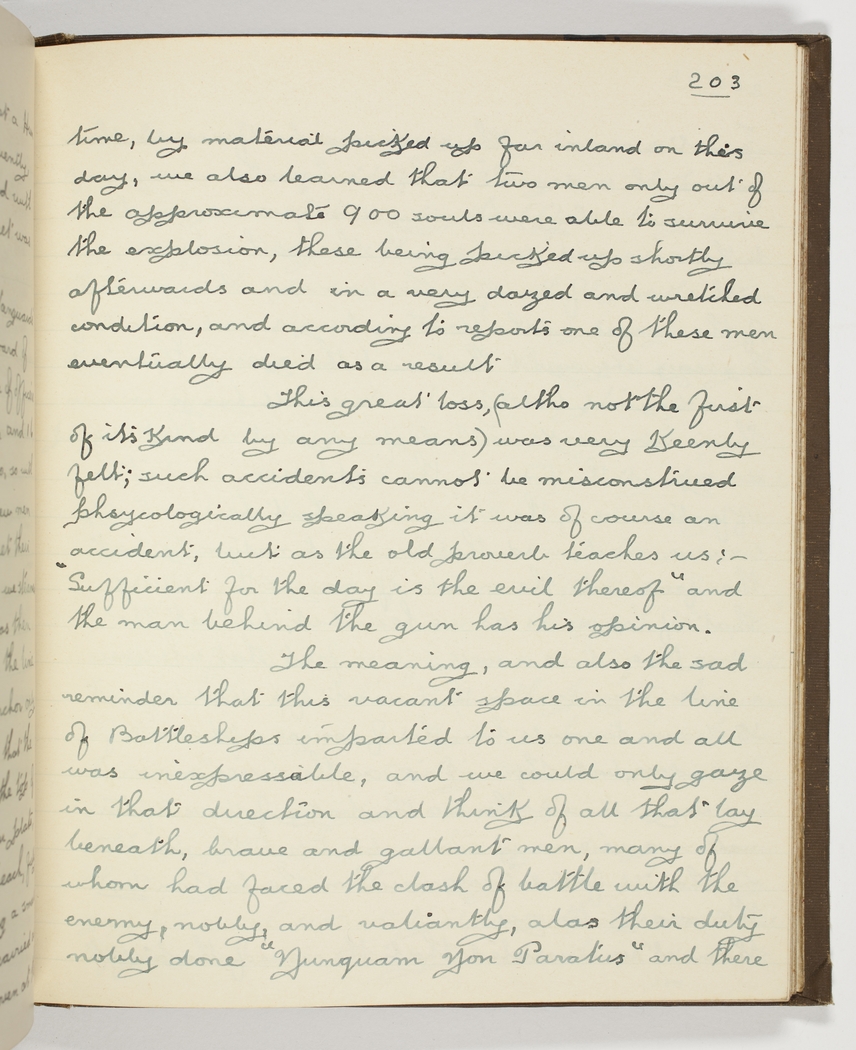 203
time, by material picked up far inland on this
day, we also learned that two men only out of
the approximate 900 souls were able to survive
the explosion, these being picked up shortly
afterwards and in a very dazed and wretched
condition, and according to reports one of these men
eventually died as a result
This great loss, (altho not the first
of its kind by any means) was very keenly
felt; such accidents cannot be misconstrued
phsycologically speaking it was of course an
accident, but as the old proverb teaches us:—
"Sufficient for the day is the evil thereof" and
the man behind the gun has his opinion.
The meaning, and also the sad
reminder that this vacant space in the line
of Battleships imparted to us one and all
was inexpressable, and we could only gaze
in that direction and think of all that lay
beneath, brave and gallant men, many of
whom had faced the clash of battle with the
enemy, nobly, and valiantly, alas their duty
nobly done "Nunquam Non Paratus" and there